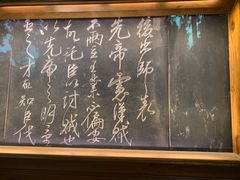 後出師表
先帝慮漢賊
不兩立王業不偏安
故託臣以討賊也
以先帝之明量
臣之才固知臣伐